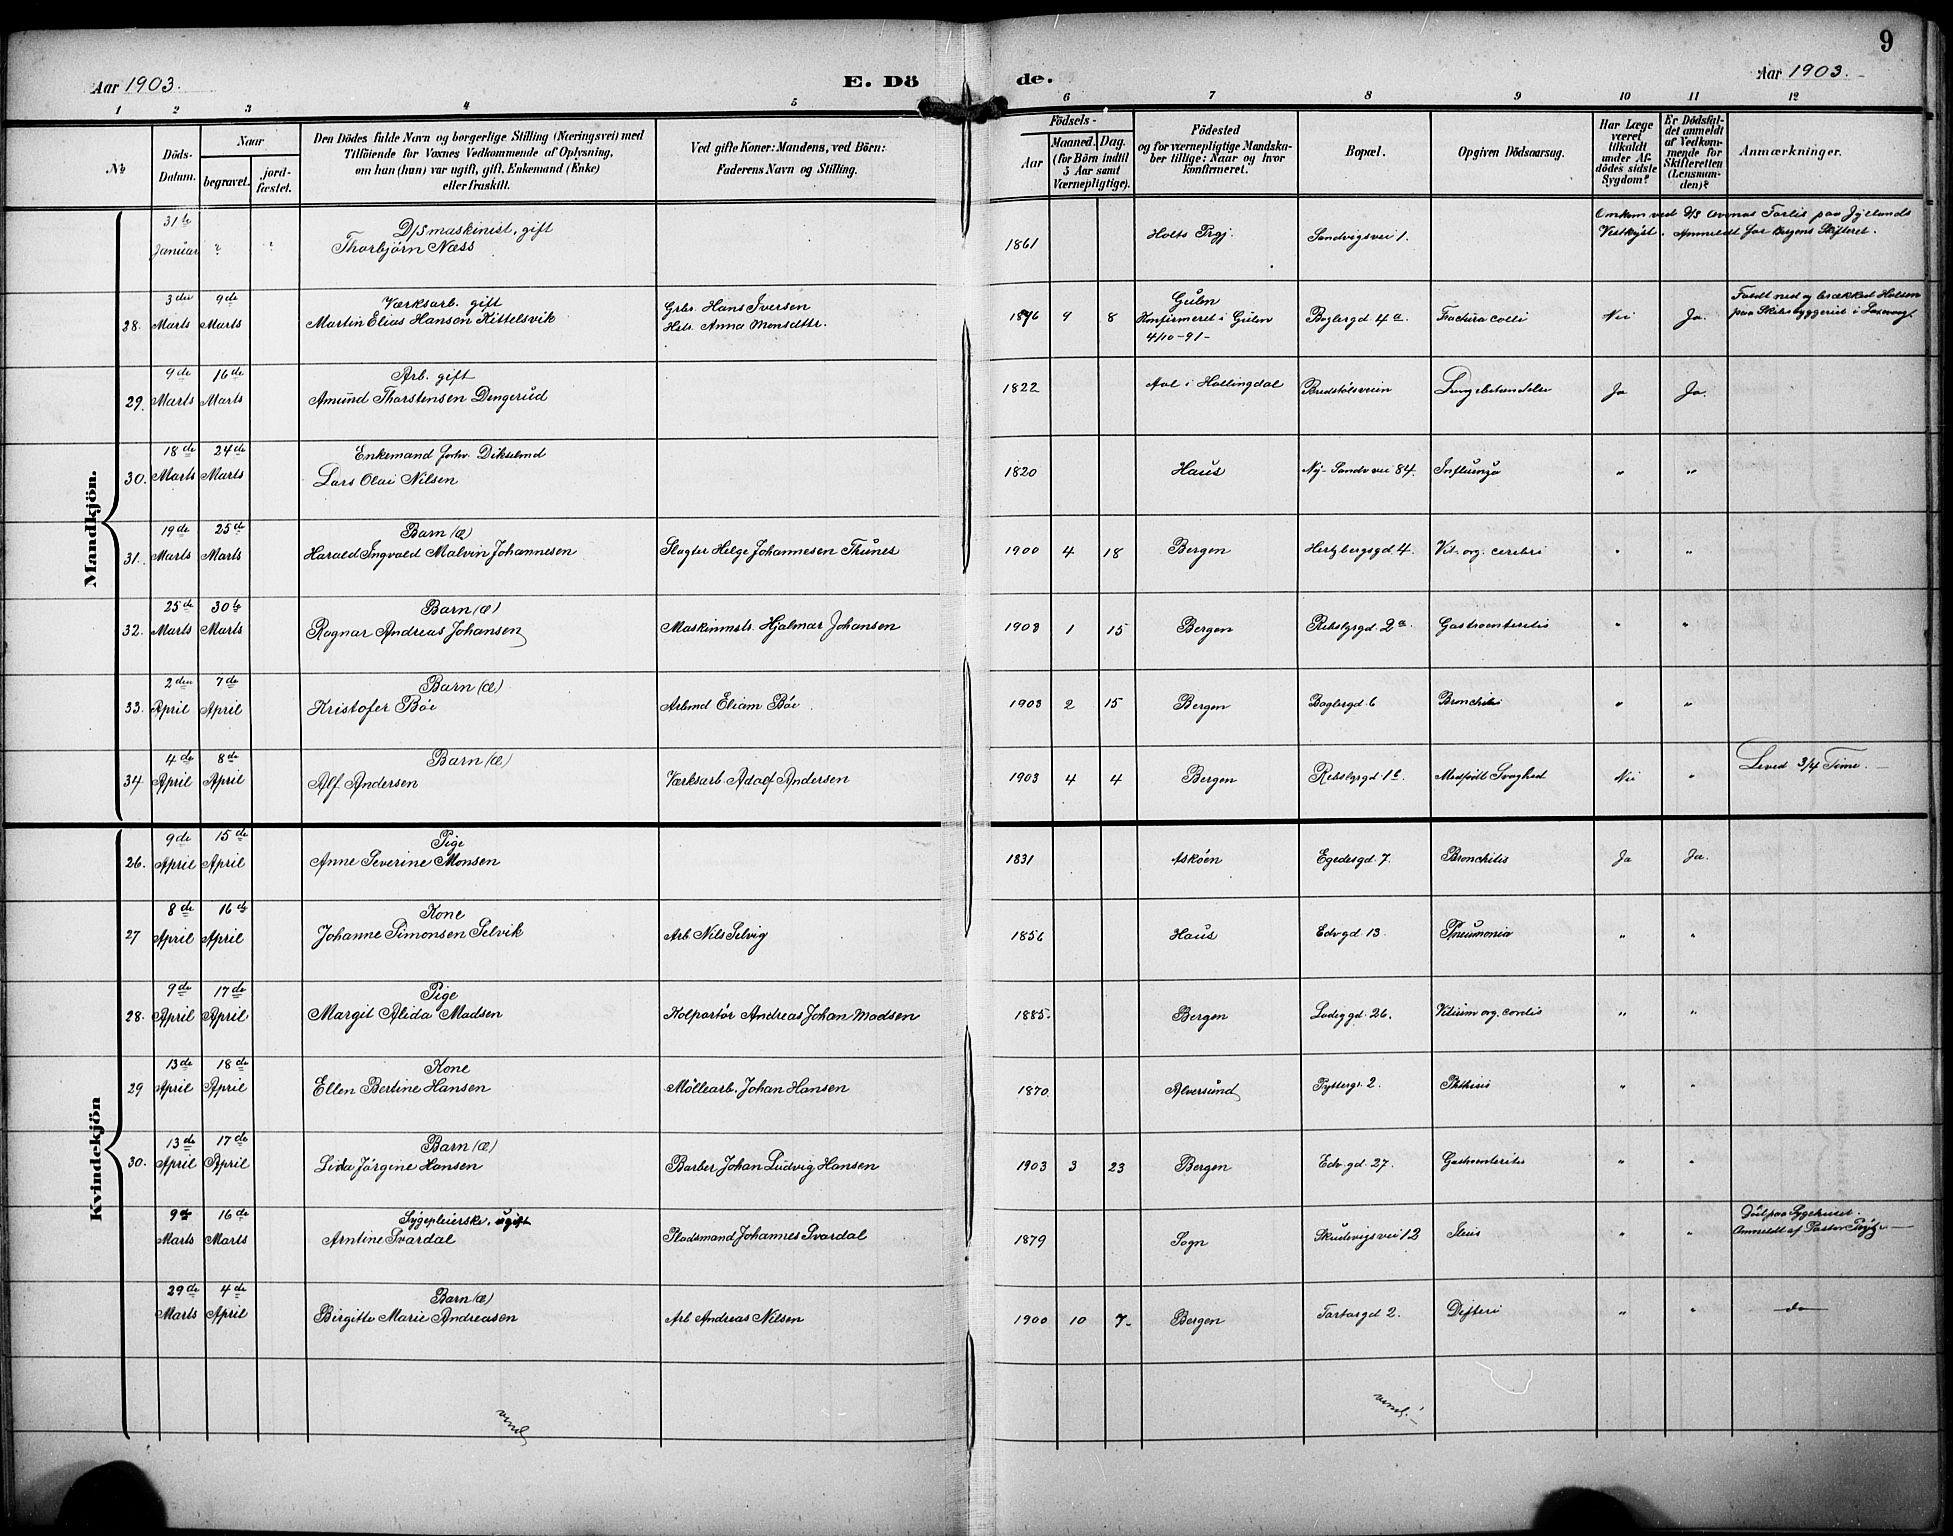 9
Aar 1903.
E. Dö
de.
Aar 1903.
1 2 3 4 5 6 7 8 9 10 11 12
No
Döds-Datum.
Naar
begravet.
jord-fæstet.
Den Dödes fulde Navn og borgerlige Stilling (Næringsvei) med
Tilföiende for Voxnes Vedkommende af Oplysning,
om han (hun) var ugift, gift, Enkemand (Enke)
eller fraskilt.
Ved gifte Koner: Mandens, ved Börn:
Faderens Navn og Stilling.
Födsels-
Aar
Maaned. Dag.
(for Börn indtil
5 Aar samt
Værnepligtige).
Födested
og for værnepligtige Mandska-
ber tillige: Naar og hvor
konfirmeret.
Bopæl.
Opgiven Dödsaarsag.
Har Læge
været
tilkaldt
under Af-
dödes sidste
Sygdom?
Er Dödsfal-
det anmeldt
af Vedkom-
mende for
Skifteretten
(Lensman-
den)?
Anmærkninger.
Mandkjön.
31te D/S maskinist, gift Omkom ved D/S Forlis paa Jyllands
Januar ? ? Thorbjörn Næss 1861 Holts Prgj. Sandvigsvei 1. Vestkyst. Anmeldt for Bergens Skifteret.
3die 9de Værksarb. gift Grbr. Hans Iversen Gulen Faldt ned og brækked Halsen
28. Marts Marts Martin Elias Hansen Kittelsvik Hstr. Anna Monsdttr. 1876 9 8 Konfirmeret i Gulen Baglergd 4a Fractura colli Nei Ja. paa Skibsbyggeriet i Laxevaag
4/10-91-
9de 16de Arb. gift
29. Marts Marts Amund Thorstensen Dengerud 1822 Aal i Hallingdal Bredstølsveien Lungebetændelse Ja Ja.
18de 24de Enkemand
30. Marts Marts Lars Olai Nilsen 1820 Haus Ny-Sandv vei 84. Influenza " "
19de 25de Barn (æ)
31. Marts Marts Harald Ingvald Malvin Johannesen Slagter Helge Johannesen Thunes 1900 4 18 Bergen Hertzbergsgd 4. Vit. org. cerebri " "
25de 30te Barn (æ)
32. Marts Marts Ragnar Andreas Johansen Maskinmstr. Hjalmar Johansen 1903 1 15 Bergen Rebslgrgd 2a. Gastroenteritis " "
2den 7de Barn (æ)
33. April April Kristofer Böe Arbmd Eliam Böe 1903 2 15 Bergen Baglergd 6 Bronchitis " "
4de 8de Barn (æ)
34 April April Alf Andersen Værksarb Adolf Andersen 1903 4 4 Bergen Medfødt Svaghed Nei " Leved 3/4 Time.
Kvindekjön
9de 15de Pige
26. April April Anne Severine Monsen 1831 Askøen Egedesgd 7. Bronchitis Ja Ja.
8de 16de Kone
27 April April Johanne Simonsen Selvik Arb Nils Selvig 1856 Haus Edv gd 13. Pneumonia " "
9de 17de Pige
28. April April Margit Alida Madsen Kolportör Andreas Johan Madsen 1885. Bergen Ladeg gd 26. Vitium org. cordis " "
13de 18de Kone
29 April April Ellen Bertine Hansen Möllearb. Johan Hansen 1870. Alversund Pyttergr. 2. Phthisis " "
13de 17de Barn (æ)
30. April April Lida Jörgine Hansen Barber Johan Ludvig Hansen 1903 3 23 Bergen Edv. gd 27. Gastroenteritis " "
9de 16de Sygepleierske, ugift Död paa Sygehuset.
Marts Marts Arntine Svardal Pladsmand Johannes Svardal 1879 Sogn Skudevigsvei 12 Ileus " " Anmeldt af Pastor
29de 4de Barn (æ)
Marts April Birgitte Marie Andreasen Arb Andreas Nilsen 1900 10 7. Bergen Tartargd 2. Difteri " " do
vend
vend!